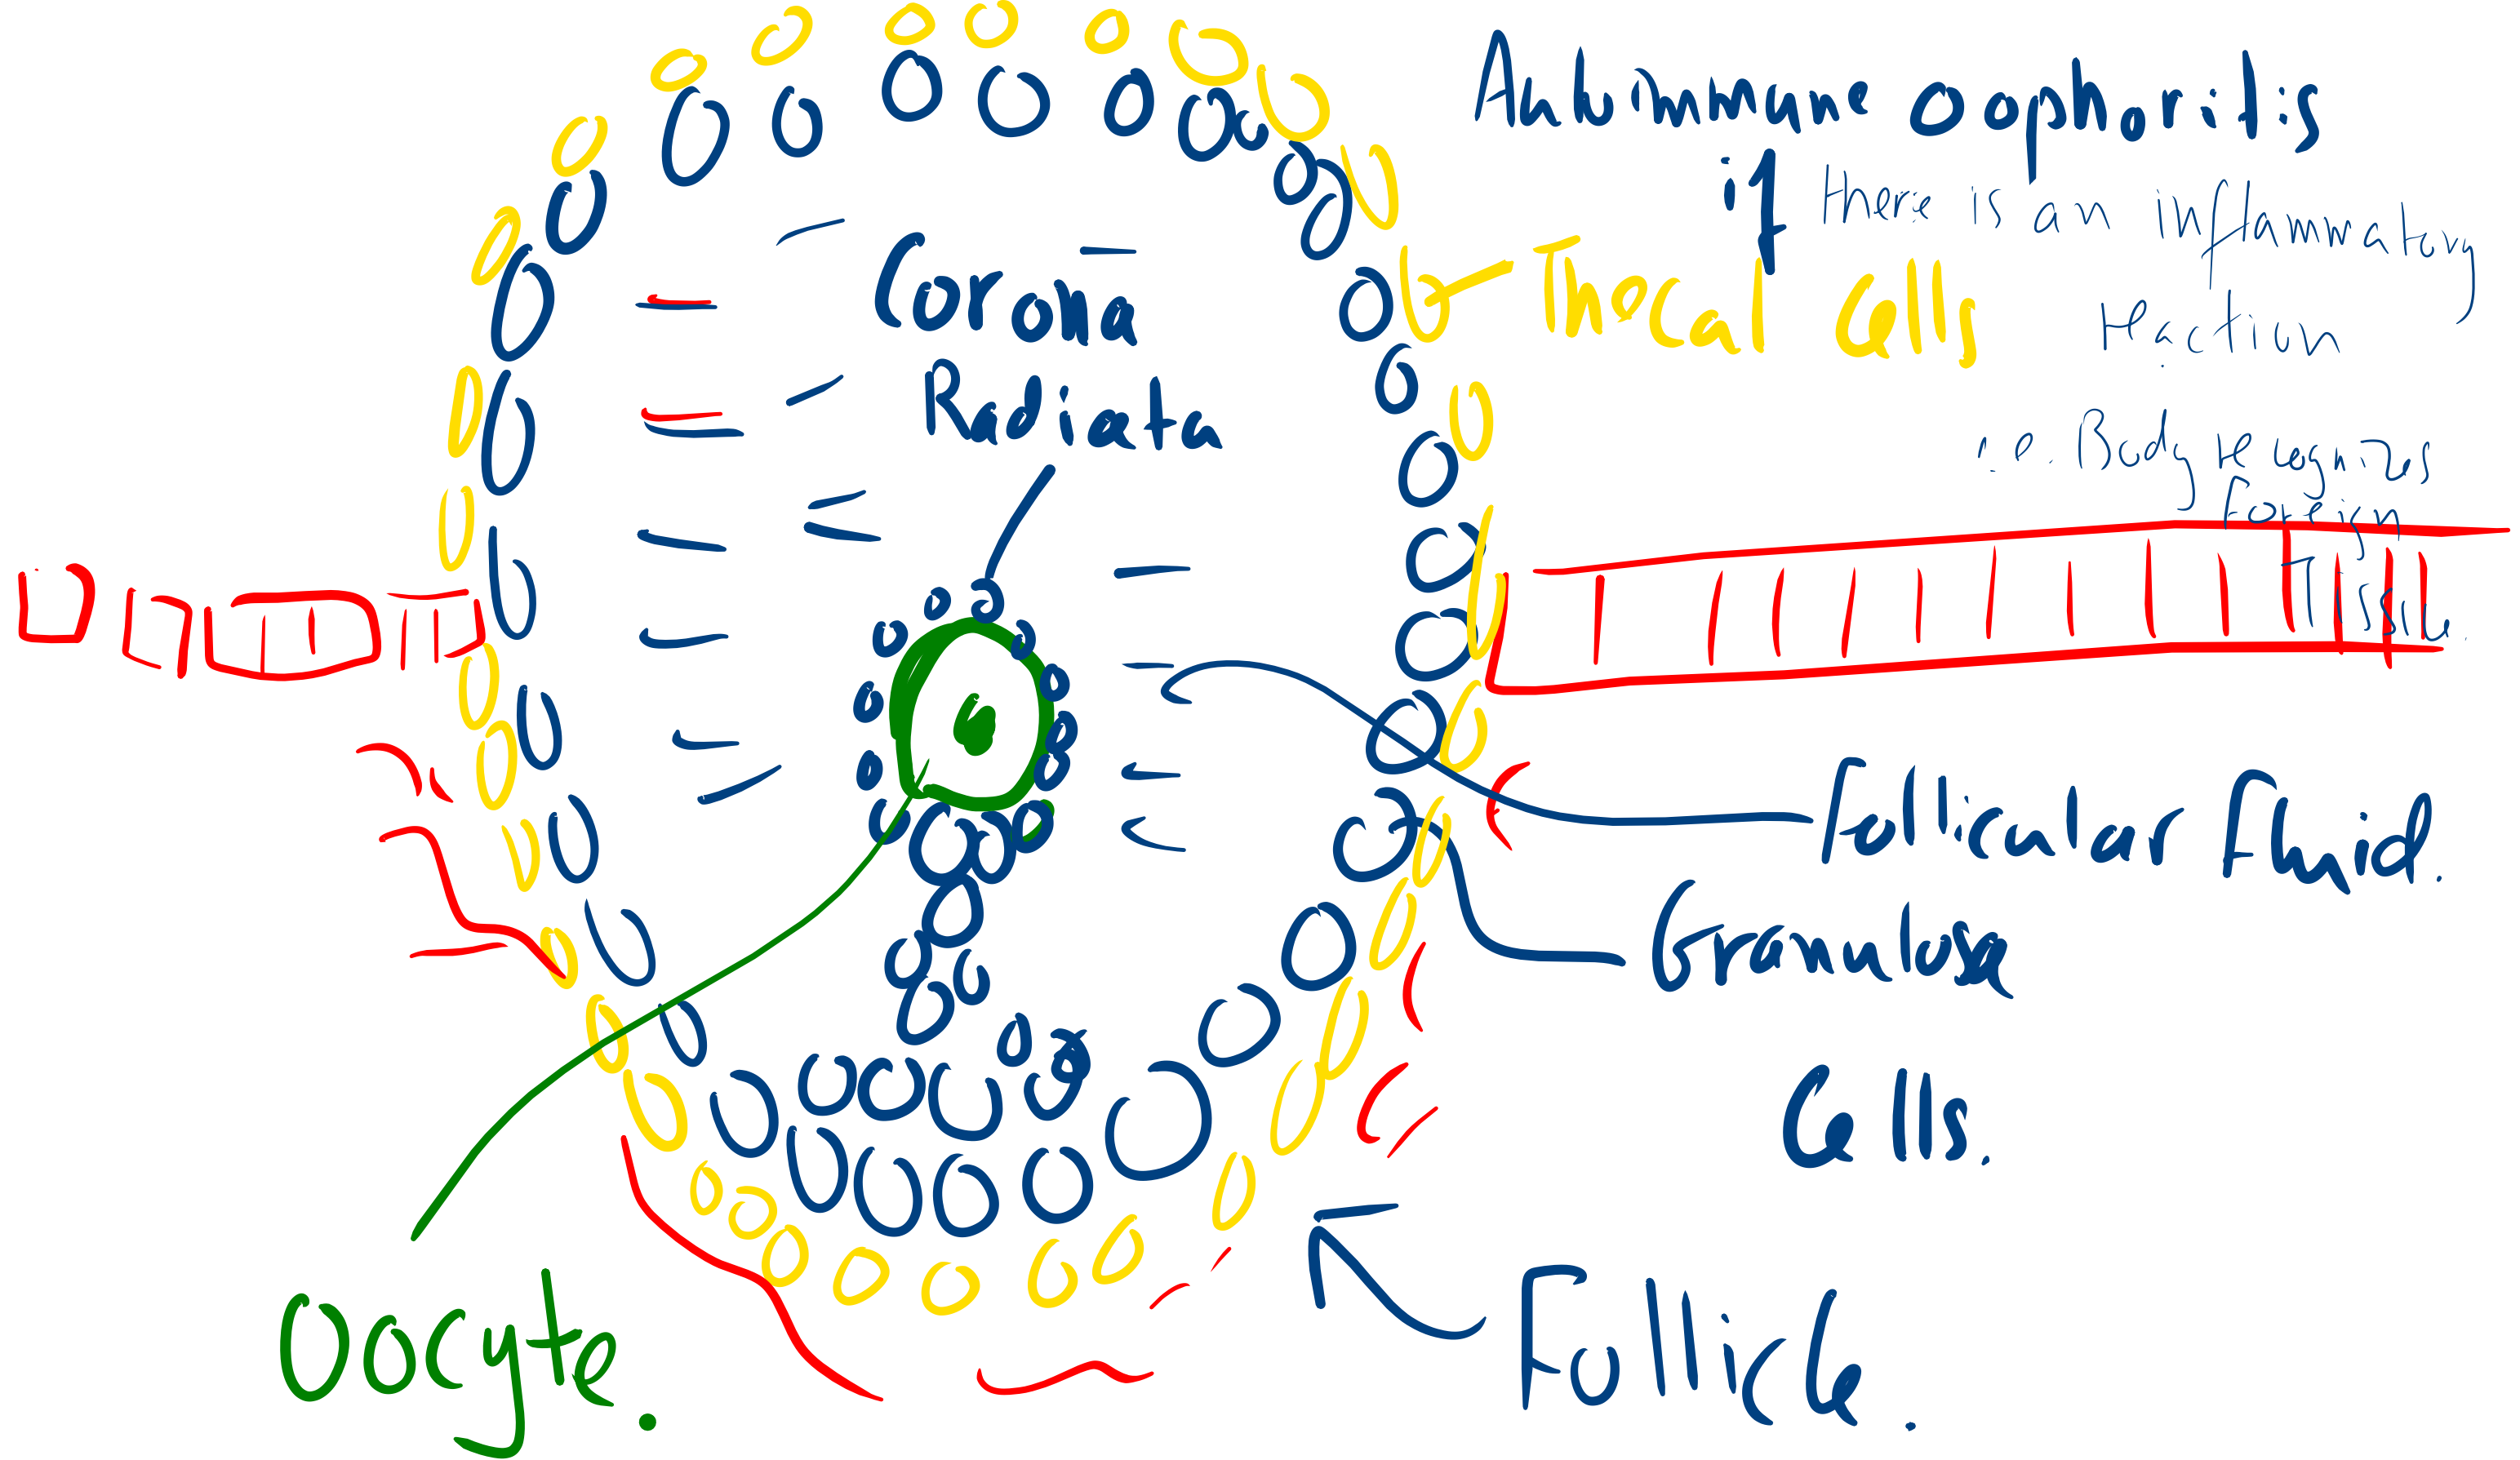 Autoimmune oophoritis
if there is an inflammatory
reaction.
i.e. Body recognizes
Foreign
Tissue.
Thecal Cells
Corona
Radiata
Follicular Fluid.
Granulosa
Cells.
Follicle.
Oocyte.